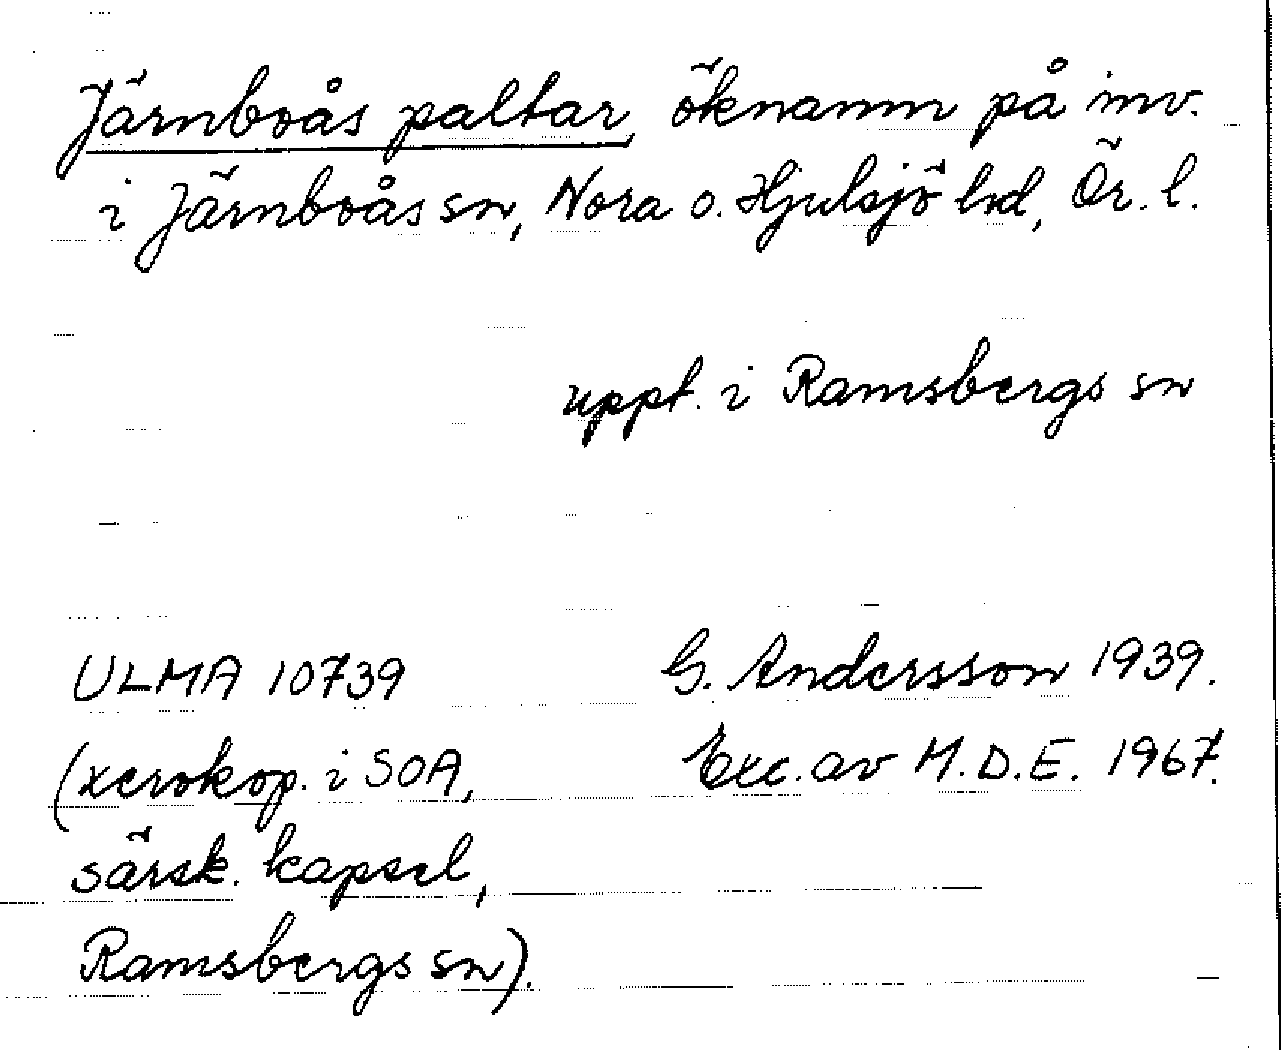 Järnboås paltar, öknamn på inv.
i Järnboås sn, Nora o. Hjulsjö hd, Ör. l.
uppt. i Ramsbergs sn
ULMA 10739 G. Andersson 1939.
(xerokop. i SOA, Exc. av M.D.E. 1967.
särsk. kapsel,
Ramsbergs sn).